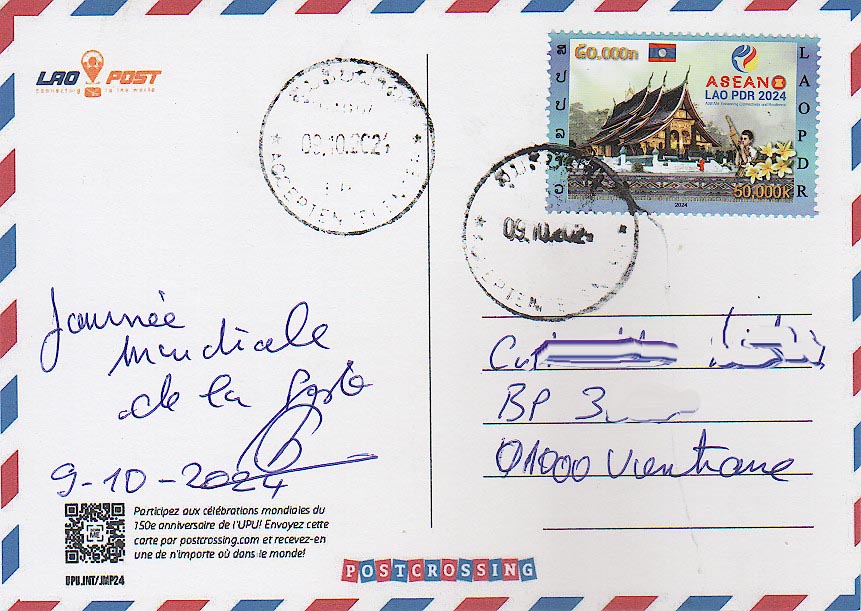 LAO POST
connecting to the world
໕໐,໐໐໐ກ
ASEAN
LAO PDR 2024
LAO PDR
ສປປ ລາວ
50,000k
2024
09.10.2024
09.10.2024
Journée
Mondiale
de la Poste
9-10-2024
BP 3
01000 Vientiane
Participez aux célébrations mondiales du
150e anniversaire de l'UPU! Envoyez cette
carte par postcrossing.com et recevez-en
une de n'importe où dans le monde!
UPU.INT/JMP24
POSTCROSSING